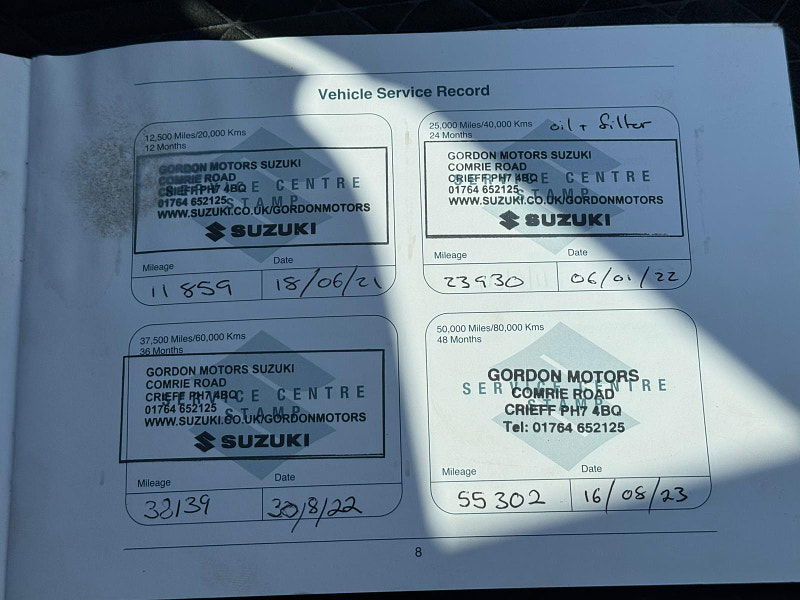 Vehicle Service Record
12,500 Miles/20,000 Kms
12 Months
GORDON MOTORS SUZUKI
COMRIE ROAD
CRIEFF PH7 4BQ
SERVICE CENTRE
01764 652125
STAMP
WWW.SUZUKI.CO.UK/GORDONMOTORS
SUZUKI
Mileage Date
11859 18/06/21
25,000 Miles/40,000 Kms oil + filter
24 Months
GORDON MOTORS SUZUKI
COMRIE ROAD
CRIEFF PH7 4BQ
SERVICE CENTRE
01764 652125
STAMP
WWW.SUZUKI.CO.UK/GORDONMOTORS
SUZUKI
Mileage Date
23930 06/01/22
37,500 Miles/60,000 Kms
36 Months
GORDON MOTORS SUZUKI
COMRIE ROAD
CRIEFF PH7 4BQ
SERVICE CENTRE
01764 652125
STAMP
WWW.SUZUKI.CO.UK/GORDONMOTORS
SUZUKI
Mileage Date
38139 30/8/22
50,000 Miles/80,000 Kms
48 Months
GORDON MOTORS
SERVICE CENTRE
COMRIE ROAD
STAMP
CRIEFF PH7 4BQ
Tel: 01764 652125
Mileage Date
55302 16/08/23
8